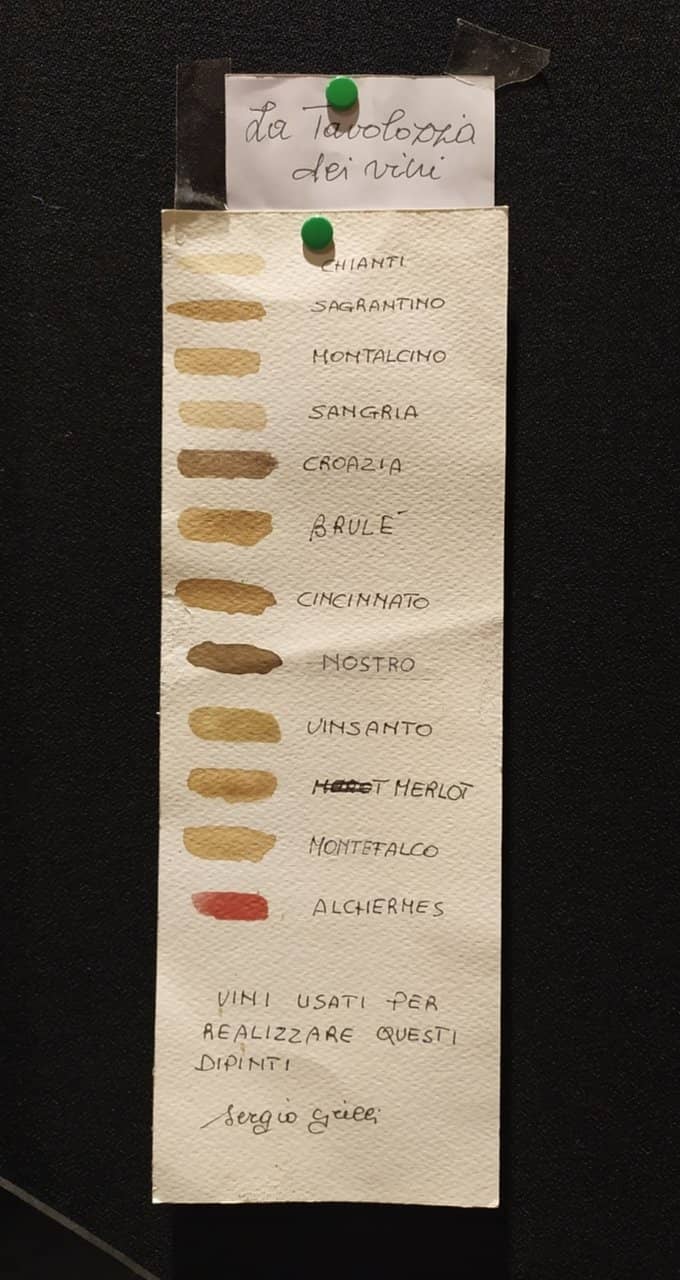 La Tavolozzia
dei vini
CHIANTI
SAGRANTINO
MONTALCINO
SANGRIA
CROAZIA
BRULÉ
CINCINNATO
NOSTRO
VINSANTO
MERLOT
MONTEFALCO
ALCHERMES
VINI USATI PER
REALIZZARE QUESTI
DIPINTI
Sergio Grilli